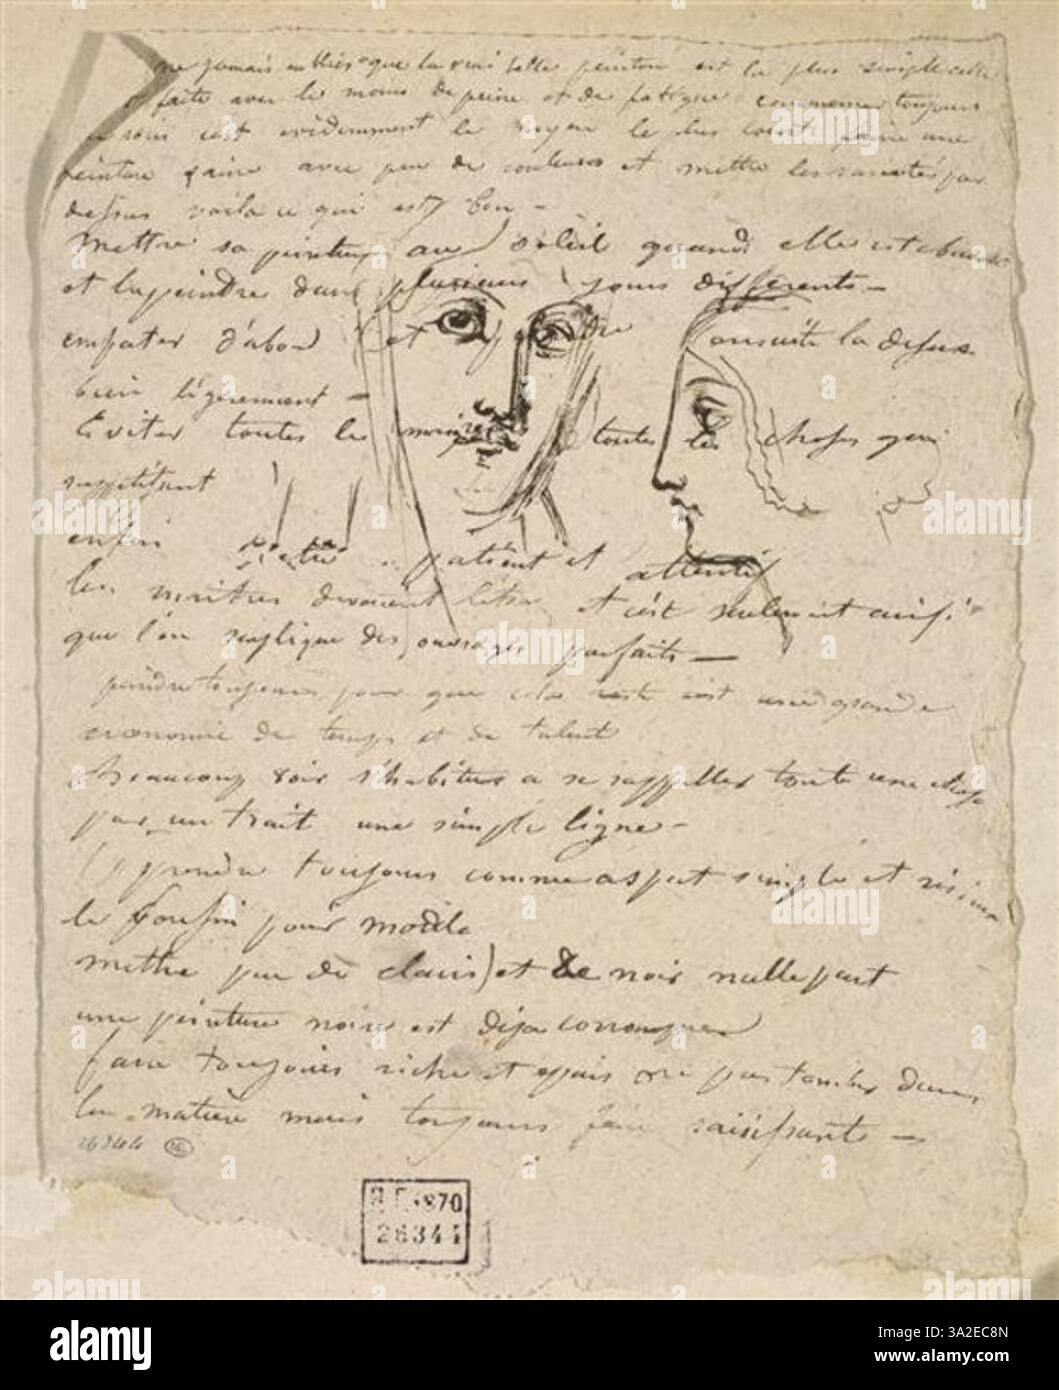 ne jamais oublier que la vrai belle peinture est la plus simple celle
faite avec le moins de peine et de fatigue commencer toujours
c'est evidemment le moyen le plus court faire une
peinture faire avec peu de couleurs et mettre les variétés par
dessus voila ce qui est bon —
mettre sa peinture au soleil quand elle est
et la peindre dans plusieurs jours differents —
empater d'abord et ensuite la dessus
bien légèrement —
Eviter toutes les toutes les choses qui
enfin patient et attentif
les maitres devaient l'etre et c'est seulement ainsi
que l'on explique des ouvrages parfaits —
peindre toujours pour que cela reste c'est une grande
economie de temps et de talent
beaucoup voir s'habituer a se rappeller toute une chose
par un trait une simple ligne —
prendre toujours comme aspect simple et
le Poussin pour modèle
mettre peu de clairs) et de noir nulle part
une peinture noire est deja
faire toujours riche et epais ne pas tomber dans
la matière mais toujours faire saisissant —
26344
R.F. 1870
26344
alamy
Image ID: 3A2EC8N
www.alamy.com